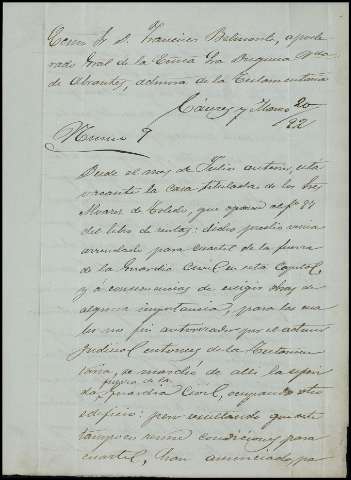 Excmo Sr D. Francisco Belmonte, apode
rado Gral de la Exma Sra Duquesa Vda
de Abrantes, admra de la Testamentaria
Cáceres y Marzo 20/92
Numo 9
Desde el mes de Julio anterior, está
vacante la casa titulada de los Sres
Alvarez de Toledo, que aparece al fº 97
del libro de rentas: dicho predio venia
arrendado para cuartel de la fuerza
de la Guardia Civil en esta Capital,
y á consecuencia de exigir obras de
alguna importancia, para las cua
les no fui autorizado por el
Judicial entonces de la Testamen
taria, se marchó de allí la
fuerza de la
Guardia Civil, ocupando otro
edificio: pero resultando que este
tampoco reune condiciones para
cuartel, han anunciado, pa